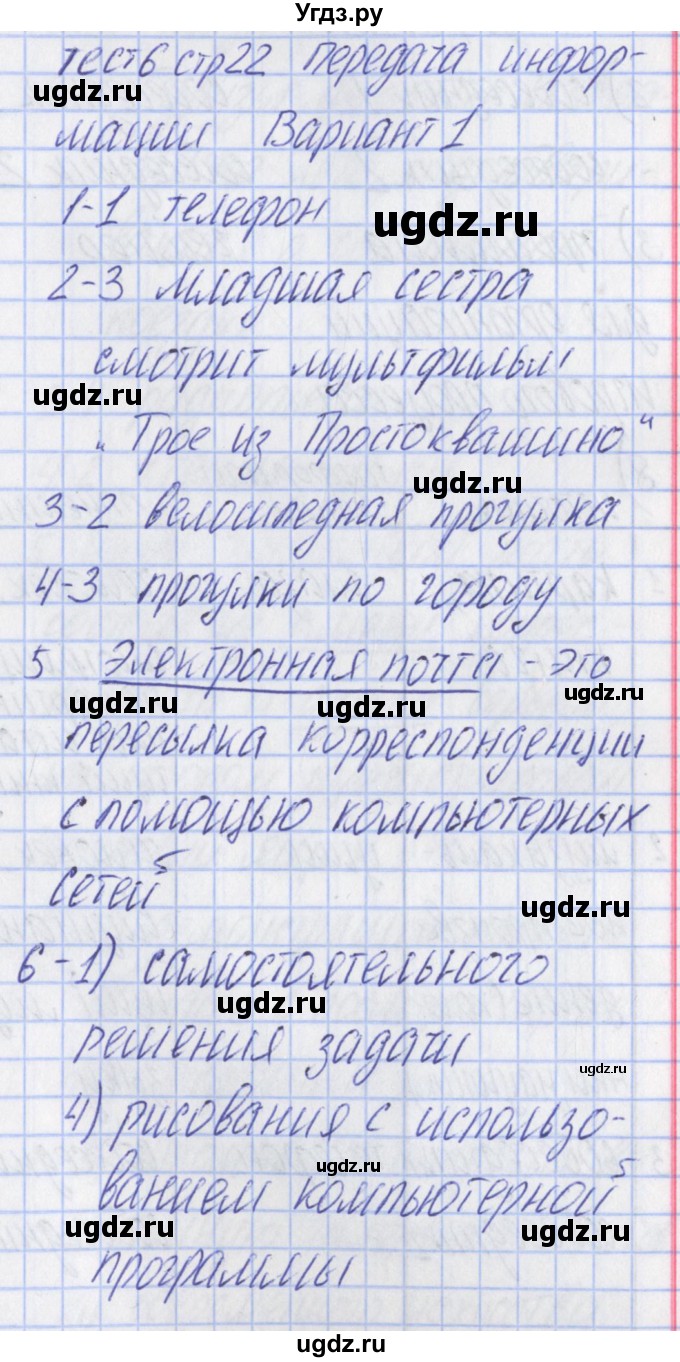 Угдз.ру
тест 6 стр 22 передача инфор-
ugdz.ru
мации Вариант 1
1-1 телефон
ugdz.ru
2-3 младшая сестра
смотрит мультфильм
ugdz.ru
"Трое из Простоквашино"
ugdz.ru
3-2 велошпедная прогулка
4-3 прогулки по городу
5 Электронная почта - это
ugdz.ru
ugdz.ru ugdz.ru
пересылка корреспонденции
с помощью компьютерных
сетей
ugdz.ru
6-1) самостоятельного
ugdz.ru
решения задачи
ugdz.ru
4) рисования с использо-
ugdz.ru
ванием компьютерной
ugdz.ru ugdz.ru
программы
ugdz.ru